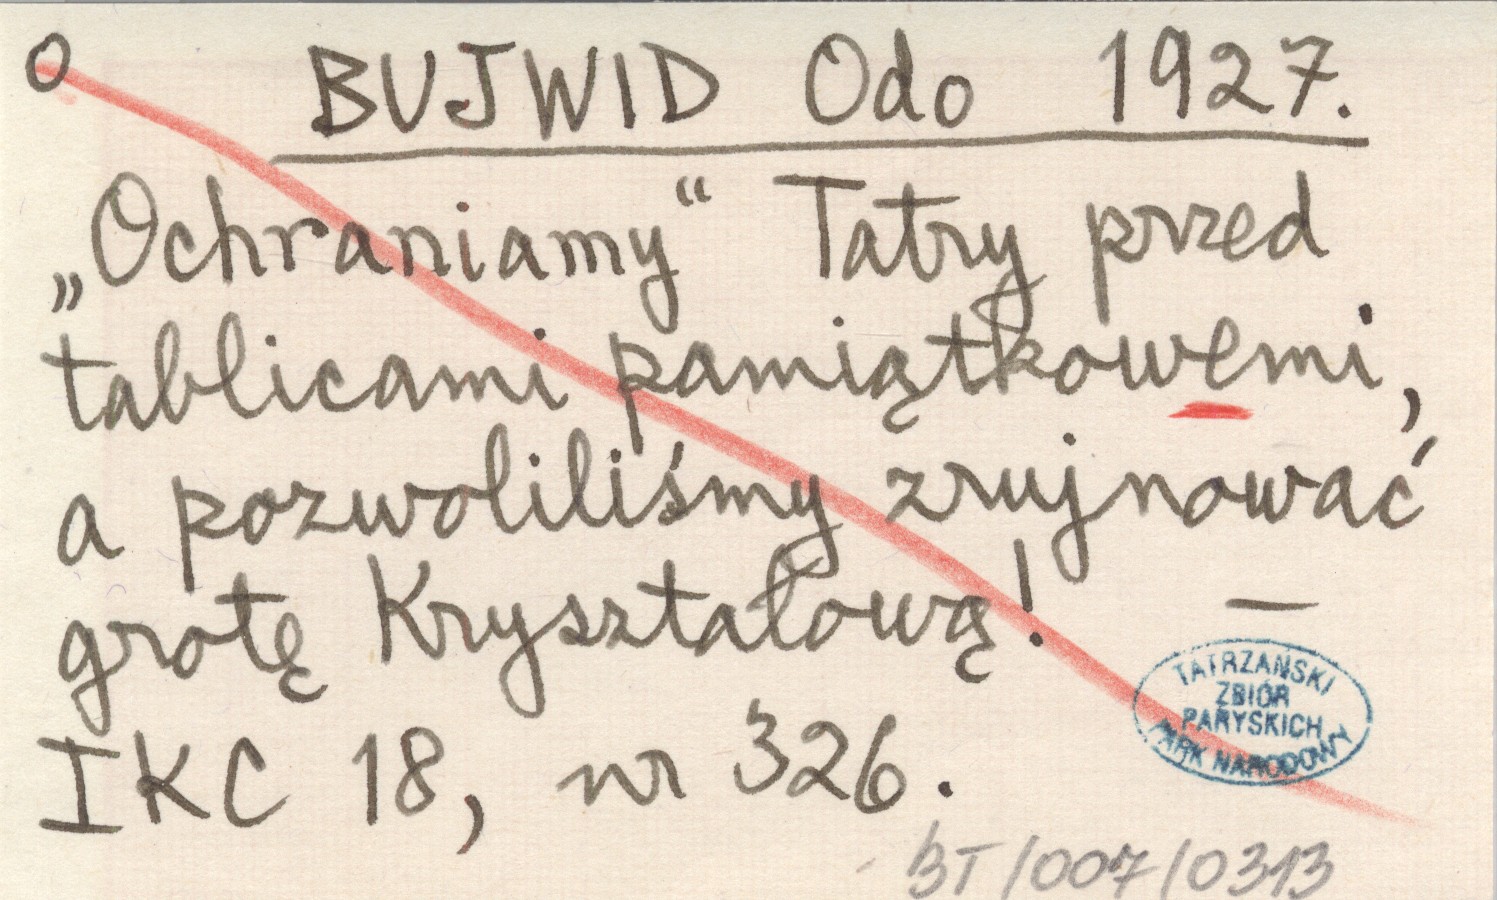 O BUJWID Odo 1927.
„Ochraniamy“ Tatry przed
tablicami pamiątkowemi,
a pozwoliliśmy zrujnować
grotę Kryształową! —
IKC 18, nr 326.
TATRZAŃSKI
ZBIÓR
PARYSKICH
PARK NARODOWY
BT/007/0313